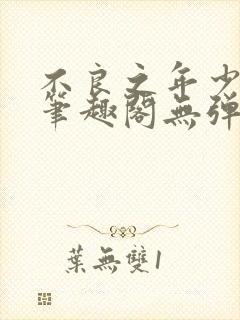 不良之年少
筆趣閣無彈
葉無雙1